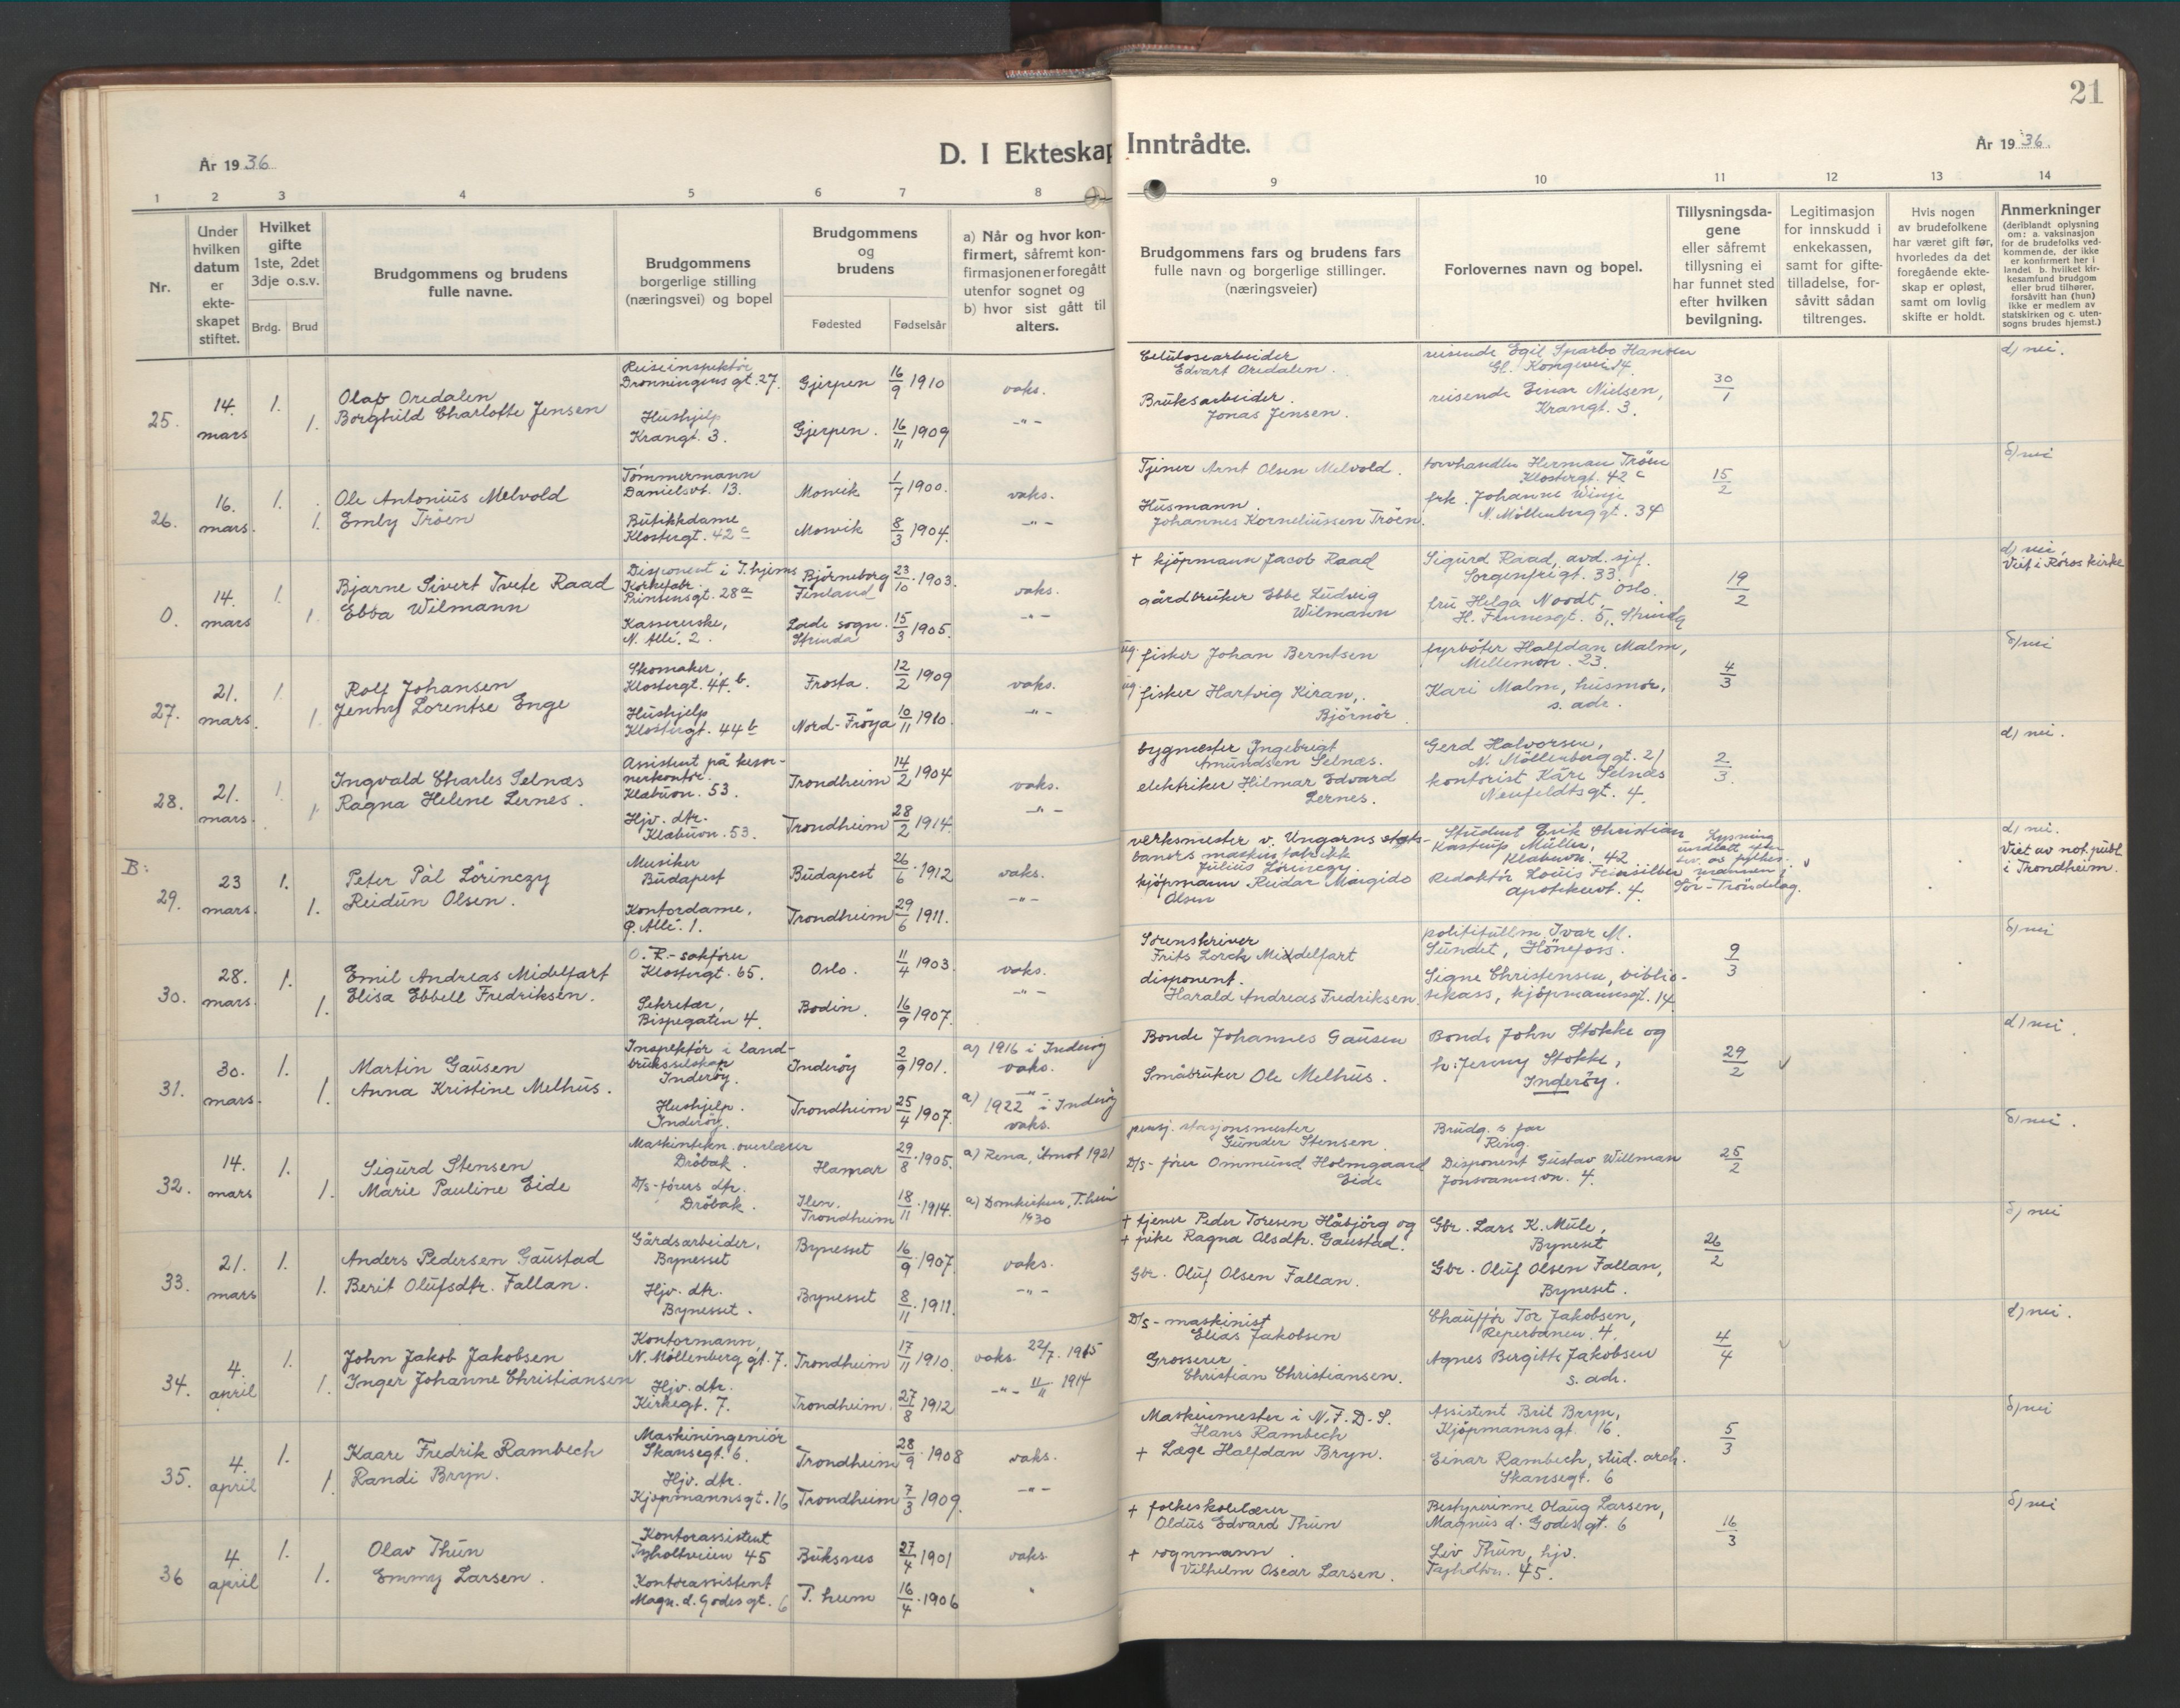 21
År 1936
D. I Ekteskap Inntrådte.
År 1936.
1 2 3 4 5 6 7 8 9 10 11 12 13 14
Nr.
Under hvilken datum er ekte-skapet stiftet.
Hvilket gifte 1ste, 2det 3dje o.s.v.
Brdg. Brud
Brudgommens og brudens fulle navne.
Brudgommens borgerlige stilling (næringsvei) og bopel
Brudgommens og brudens
Fødested Fødselsår
a) Når og hvor kon-firmert, såfremt kon-firmasjonen er foregått utenfor sognet og b) hvor sist gått til alters.
Brudgommens fars og brudens fars fulle navn og borgerlige stillinger. (næringsveier)
Forlovernes navn og bopel.
Tillysningsda-gene eller såfremt tillysning ei har funnet sted efter hvilken bevilgning.
Legitimasjon for innskudd i enkekassen, samt for gifte-tilladelse, for-såvitt sådan tiltrenges.
Hvis nogen av brudefolkene har været gift før, hvorledes da det foregående ekte-skap er opløst, samt om lovlig skifte er holdt.
Anmerkninger (deriblandt oplysning om: a. vaksinasjon for de brudefolks ved-kommende, der ikke er konfirmert her i landet b. hvilket kir-kesamfund brudgom eller brud tilhører, forsåvitt han (hun) ikke er medlem av statskirken og c. uten-sogns brudes hjemst.)
25. 14. mars 1. 1.
Olav Oredalen
Borghild Charlotte Jensen
Reiseinspektör
Dronningens gt. 27.
Hushjelp
Krangt. 3.
Gjerpen 16/9 1910 vaks.
Gjerpen. 16/11 1909 -"-
Celulosearbeider
Edvart Oredalen.
Bruksarbeider.
Jonas Jensen.
reisende Egil Sparbo Hansen
Gl. Kongevei 14.
reisende Einar Nielsen,
Krangt. 3.
30/1
d) nei.
26. 16. mars. 1. 1.
Ole Antonius Melvold
Emly Tröen
Tömmermann
Danielsvt. 13.
Butikkdame
Klostergt. 42 c
Mosvik 1/7 1900. vaks.
Mosvik 8/3 1904. -"-
Tjener Arnt Olsen Melvold.
Husmann.
Johannes Korneliussen Tröen.
torvhandler Herman Tröen
Klostergt. 42 c
frk. Johanne Winje
N. Möllenberg gt. 34
15/2
d) nei
0. 14. mars 1. 1.
Bjarne Sivert Tvete Raad
Ebba Wilmann
Disponent i T.hjems
Korkefabr.
Prinsensgt. 28 a
Kassererske,
N. Allé. 2.
Björneborg Finland 23/10 1903. vaks.
Lade sogn. Strinda 15/3 1905. -"-
+ kjöpmann Jacob Raad
gårdbruker Ebbe Ludvig
Wilmann
Sigurd Raad, avd. sjef.
Sorgenfrigt. 33. Oslo.
fru Helga Noodt,
H. Finnesgt. 5, Strinda
19/2
d) nei.
Viet i Röros kirke
27. 21. mars. 1. 1.
Rolf Johansen
Jenny Lorentse Enge
Skomaker,
Klostergt. 44. b.
Hushjelp
Klostergt. 44 b
Frosta. 12/2 1909 vaks.
Nord-Fröya 10/11 1910. -"-
ug. fisker Johan Berntsen
ug fisker Hartvig Kiran,
Björnör.
fyrböter Halfdan Malm,
Mellemon. 23.
Kari Malm, husmor,
s. adr.
4/3
d) nei
28. 21. mars. 1. 1
Ingvald Charles Selnæs
Ragna Helene Lernes.
Assistent på kem-
nerkontor.
Klæbuon. 53.
Hjv. dtr.
Klæbuon. 53.
Trondheim 14/2 1904 vaks.
Trondheim 28/2 1914. -"-
bygmester Ingebrigt
Amundsen Selnæs.
elektriker Hilmar Edvard
Lernes.
Gerd Halvorsen,
N. Möllenberg gt. 21
kontorist Kåre Selnæs
Neufeldtsgt. 4.
2/3.
d) nei.
B:
29. 23 mars. 1. 1.
Peter Pál Lörinczy
Reidun Olsen.
Musiker
Budapest
Kontordame,
Ø. Allé. 1.
Budapest 26/6 1912 vaks.
Trondheim 29/6 1911. -"-
verksmester v. Ungarns stats-
baners maskinfabrikk
Julius Lörinczy.
kjöpmann Reidar Margido
Olsen
Student Erik Christian
Kastrup Müller,
Klæbuon. 42
Redaktör Louis Feinsilber
Apotekervt. 4.
Lysning
undlatt efter
bev. av fylkes-
mannen i
Sör-Tröndelag.
d) nei.
Viet av not. publ.
i Trondheim.
30. 28. mars. 1. 1.
Emil Andreas Midelfart
Elisa Ebbell Fredriksen.
O.R.-sakförer
Klostergt. 65.
Sekretær,
Bispegaten 4.
Oslo. 11/4 1903. vaks.
Bodin. 16/9 1907. -"-
Sorenskriver
Frits Lorck Middelfart
disponent.
Harald Andreas Fredriksen.
politifullm. Ivar M.
Sundet, Hönefoss.
Signe Christensen, biblio-
tekass, kjöpmannsgt. 14
9/3
d) nei
31. 30. mars. 1. 1.
Martin Gausen
Anna Kristine Melhus.
Inspektör i land-
bruksselskap
Inderöy.
Hushjelp.
Inderöy.
Inderöy 2/9 1901. a) 1916 i Inderöy vaks.
Trondheim 25/4 1907. a) 1922 i Inderöy vaks.
Bonde Johannes Gausen
Småbruker Ole Melhus.
Bonde John Stokke og
h: Jenny Stokke,
Inderöy.
29/2
d) nei.
32. 14. mars 1. 1.
Sigurd Stensen
Marie Pauline Eide
Maskintekn. overlærer
Dröbak.
D/S-förers dtr.
Dröbak.
Hamar 29/8 1905. a) Rena, Åmot 1921
Ilen. Trondheim 18/11 1914. a) Domkirken, T.heim 1930
pensj. stasjonsmester
Gunder Stensen.
D/S-förer Ommund Holmgaard
Eide
Brudg. s far
Ring.
Disponent Gustav Willman
Jonsvannsvn. 4.
25/2
d) nei.
33. 21. mars 1. 1.
Anders Pedersen Gaustad
Berit Olufsdtr. Fallan.
Gårdsarbeider,
Bynesset
Hjv. dtr.
Bynesset.
Bynesset 16/9 1907. vaks.
Bynesset 8/11 1911. -"-
+ tjener Peder Toresen Håbjörg og
+ pike Ragna Olsdtr. Gaustad.
Gbr. Oluf Olsen Fallan.
Gbr. Lars K. Mule,
Byneset
Gbr. Oluf Olsen Fallan,
Byneset.
26/2
d) nei
34. 4. april 1. 1.
John Jakob Jakobsen
Inger Johanne Christiansen
Kontormann,
N. Möllenberg gt. 7.
Hjv. dtr.
Kirkegt. 7.
Trondheim 17/11 1910. vaks. 22/7. 1915
Trondheim. 27/8 1912 -"- 11/11 1914
D/S-maskinist
Elias Jakobsen
Grosserer
Christian Christiansen.
Chaufför Tor Jakobsen,
Reperbanen. 4.
Agnes Bergitte Jakobsen
s. adr.
4/4
d) nei.
35. 4. april 1. 1.
Kaare Fredrik Rambech
Randi Bryn.
Maskiningeniör
Skansegt. 6.
Hjv. dtr.
Kjöpmannsgt. 16
Trondheim 28/9 1908 vaks.
Trondheim 7/3 1909. -"-
Maskinmester i N.F.D.S.
Hans Rambech
+ Læge Halfdan Bryn.
Assistent Brit Bryn,
Kjöpmannsgt. 16.
Einar Rambech, stud. arch.
Skansegt. 6
5/3
d) nei
36 4. april 1. 1.
Olav Thun
Emmy Larsen.
Kontorassistent
Tyholtveien 45
Kontorassistent
Magn. d. Godes gt. 6
Buksnes 27/4 1901 vaks.
T.heim 16/4 1906 "
+ folkeskolelærer
Oldus Edvard Thun
+ vognmann.
Vilhelm Oscar Larsen.
Bestyrerinne Olaug Larsen,
Magnus d. Godes gt. 6
Liv Thun, hjv.
Tyholtvn. 45.
16/3
d) nei